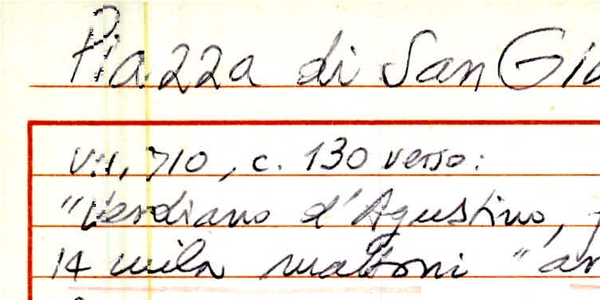 Piazza di San Gio
VII, 710, c. 130 verso:
"Verdiano d'Agustino,
14 mila mattoni "an